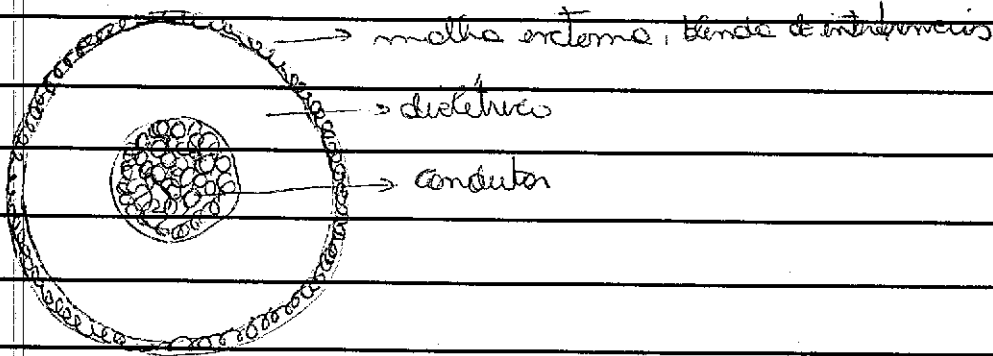 malha externa, blinda de interferências
dielétrico
condutor